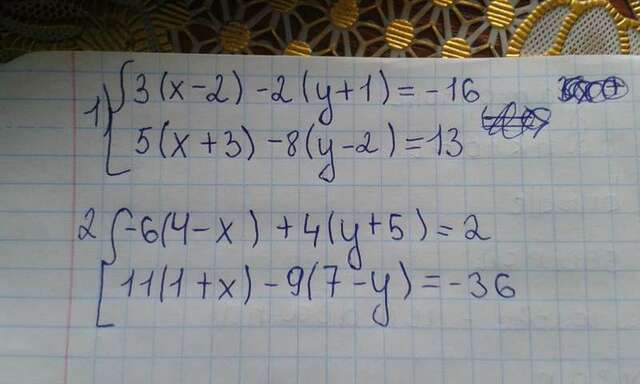 1) { 3(x-2)-2(y+1)=-16
5(x+3)-8(y-2)=13
2 { -6(4-x)+4(y+5)=2
11(1+x)-9(7-y)=-36